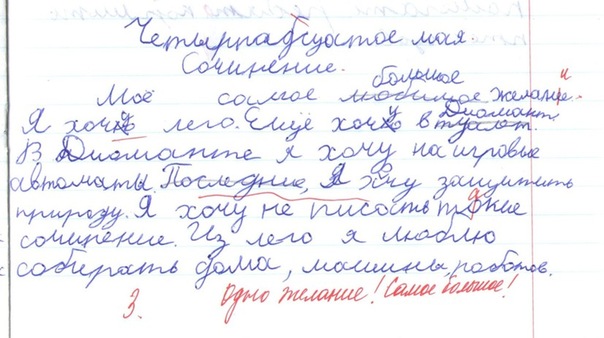 Четырнадцатое мая.
Сочинение.
большое
Моё самое любимое желание.
Я хочу лего. Ещё хочу в туалет. Диомант.
В Диоманте я хочу на игровые
автоматы. Последние, Я хчу защитить
природу. Я хочу не писость такие
сочинение. Из лего я люблю
собирать дома, машины, работов.
Одно желание! Самое большое!
3.